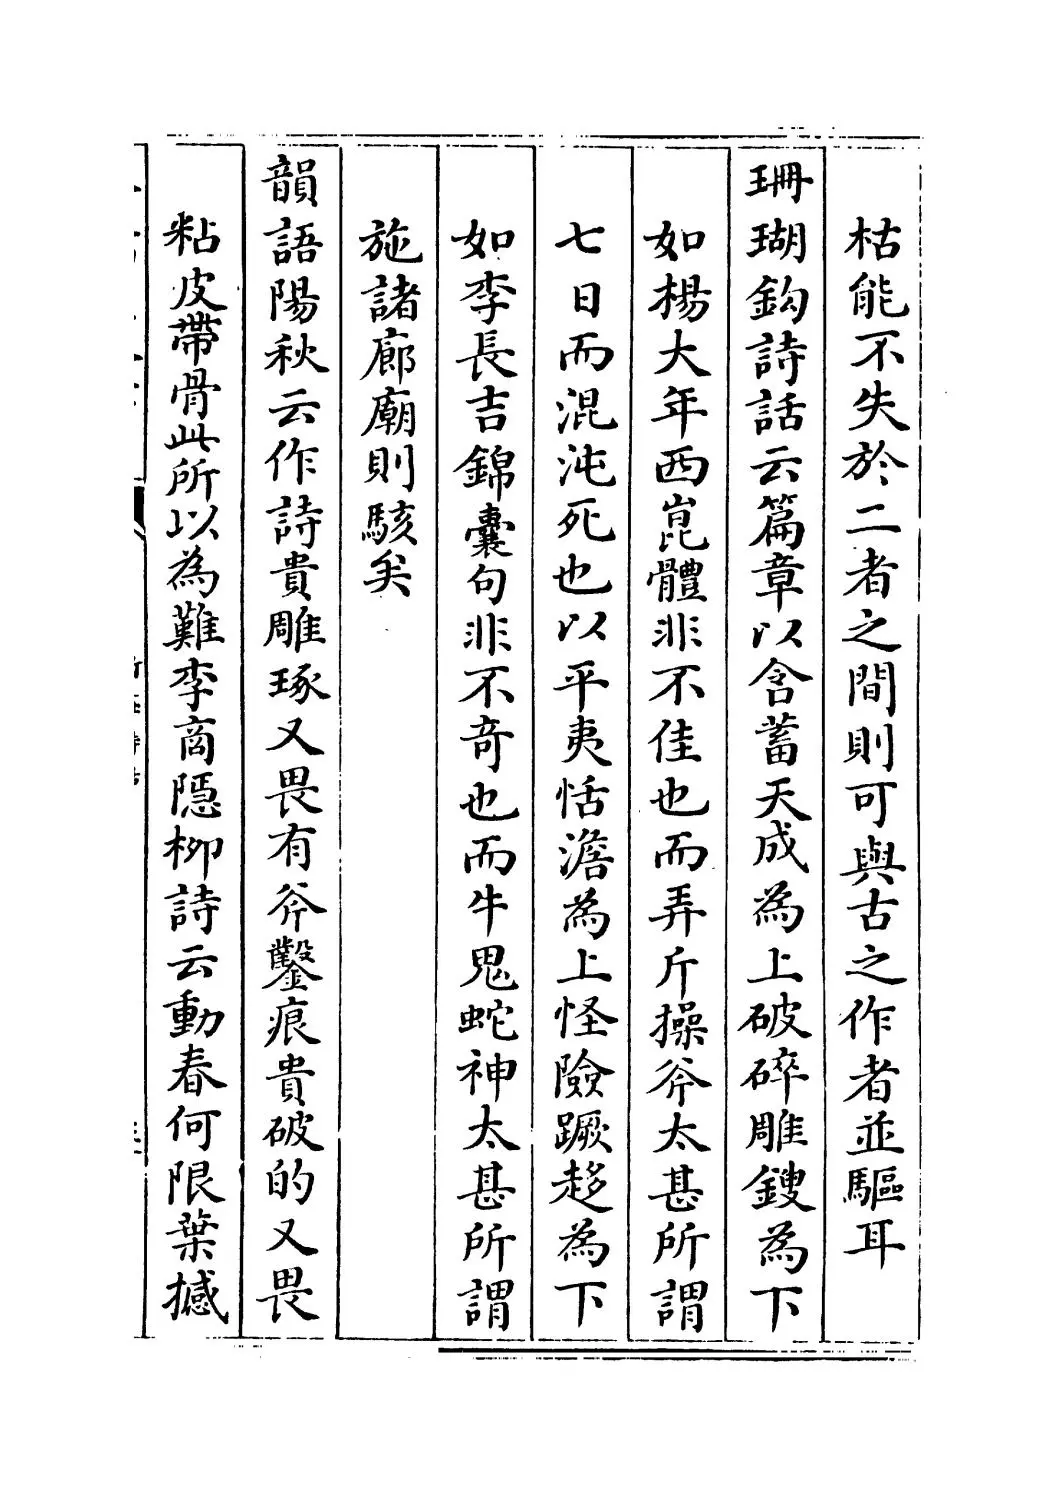 枯能不失於二者之間則可與古之作者並驅耳
珊瑚鈎詩話云篇章以含蓄天成為上破碎雕鎪為下
如楊大年西崑體非不佳也而弄斤操斧太甚所謂
七日而混沌死也以平夷恬澹為上怪險蹶趍為下
如李長吉錦囊句非不奇也而牛鬼蛇神太甚所謂
施諸廊廟則駭矣
韻語陽秋云作詩貴雕琢又畏有斧鑿痕貴破的又畏
粘皮帶骨此所以為難李商隠柳詩云動春何限葉撼